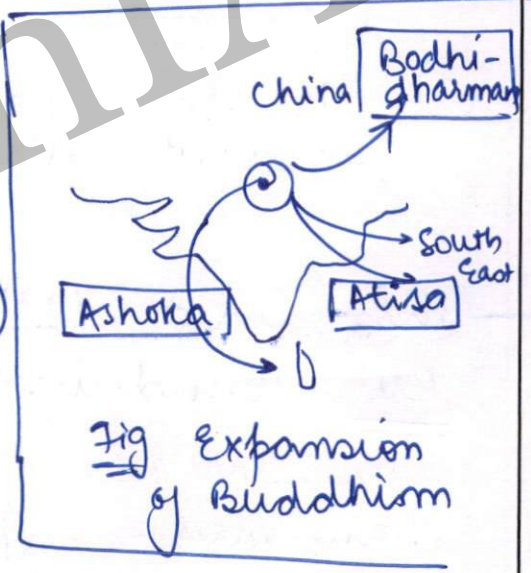 Bodhi-
China dharman
South
East
Ashoka
Atisa
Fig Expansion
of Buddhism